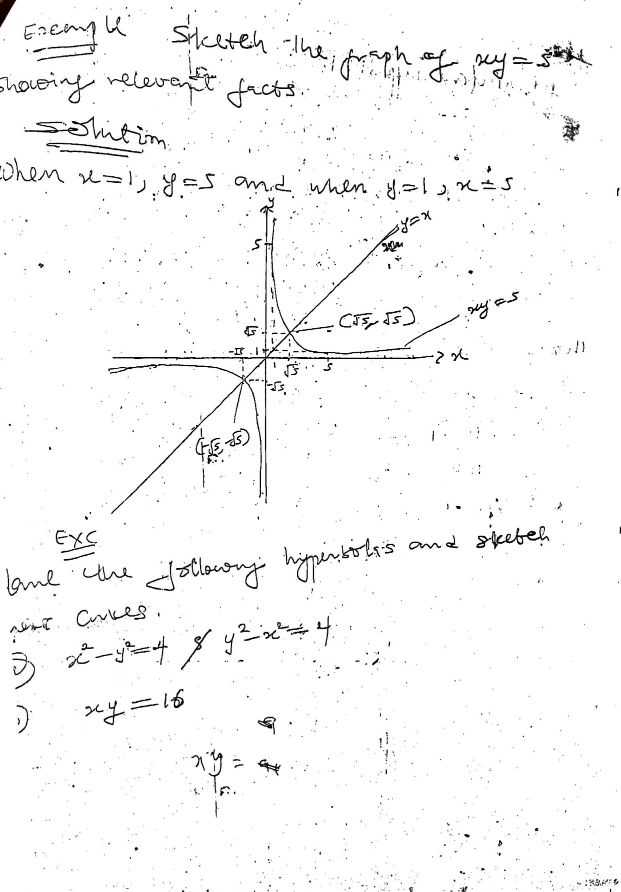 Example Sketch the graph of xy = 5
showing relevant facts.
Solution
When x=1, y=5 and when y=1, x=5
y
y=x
5
(√5, √5)
xy=5
√5
1
-√5
√5
5
x
-√5
(-√5, -√5)
EXC
the following hyperbolas and sketch
curves.
x²-y²=4 & y²-x²=4
xy=16
xy =